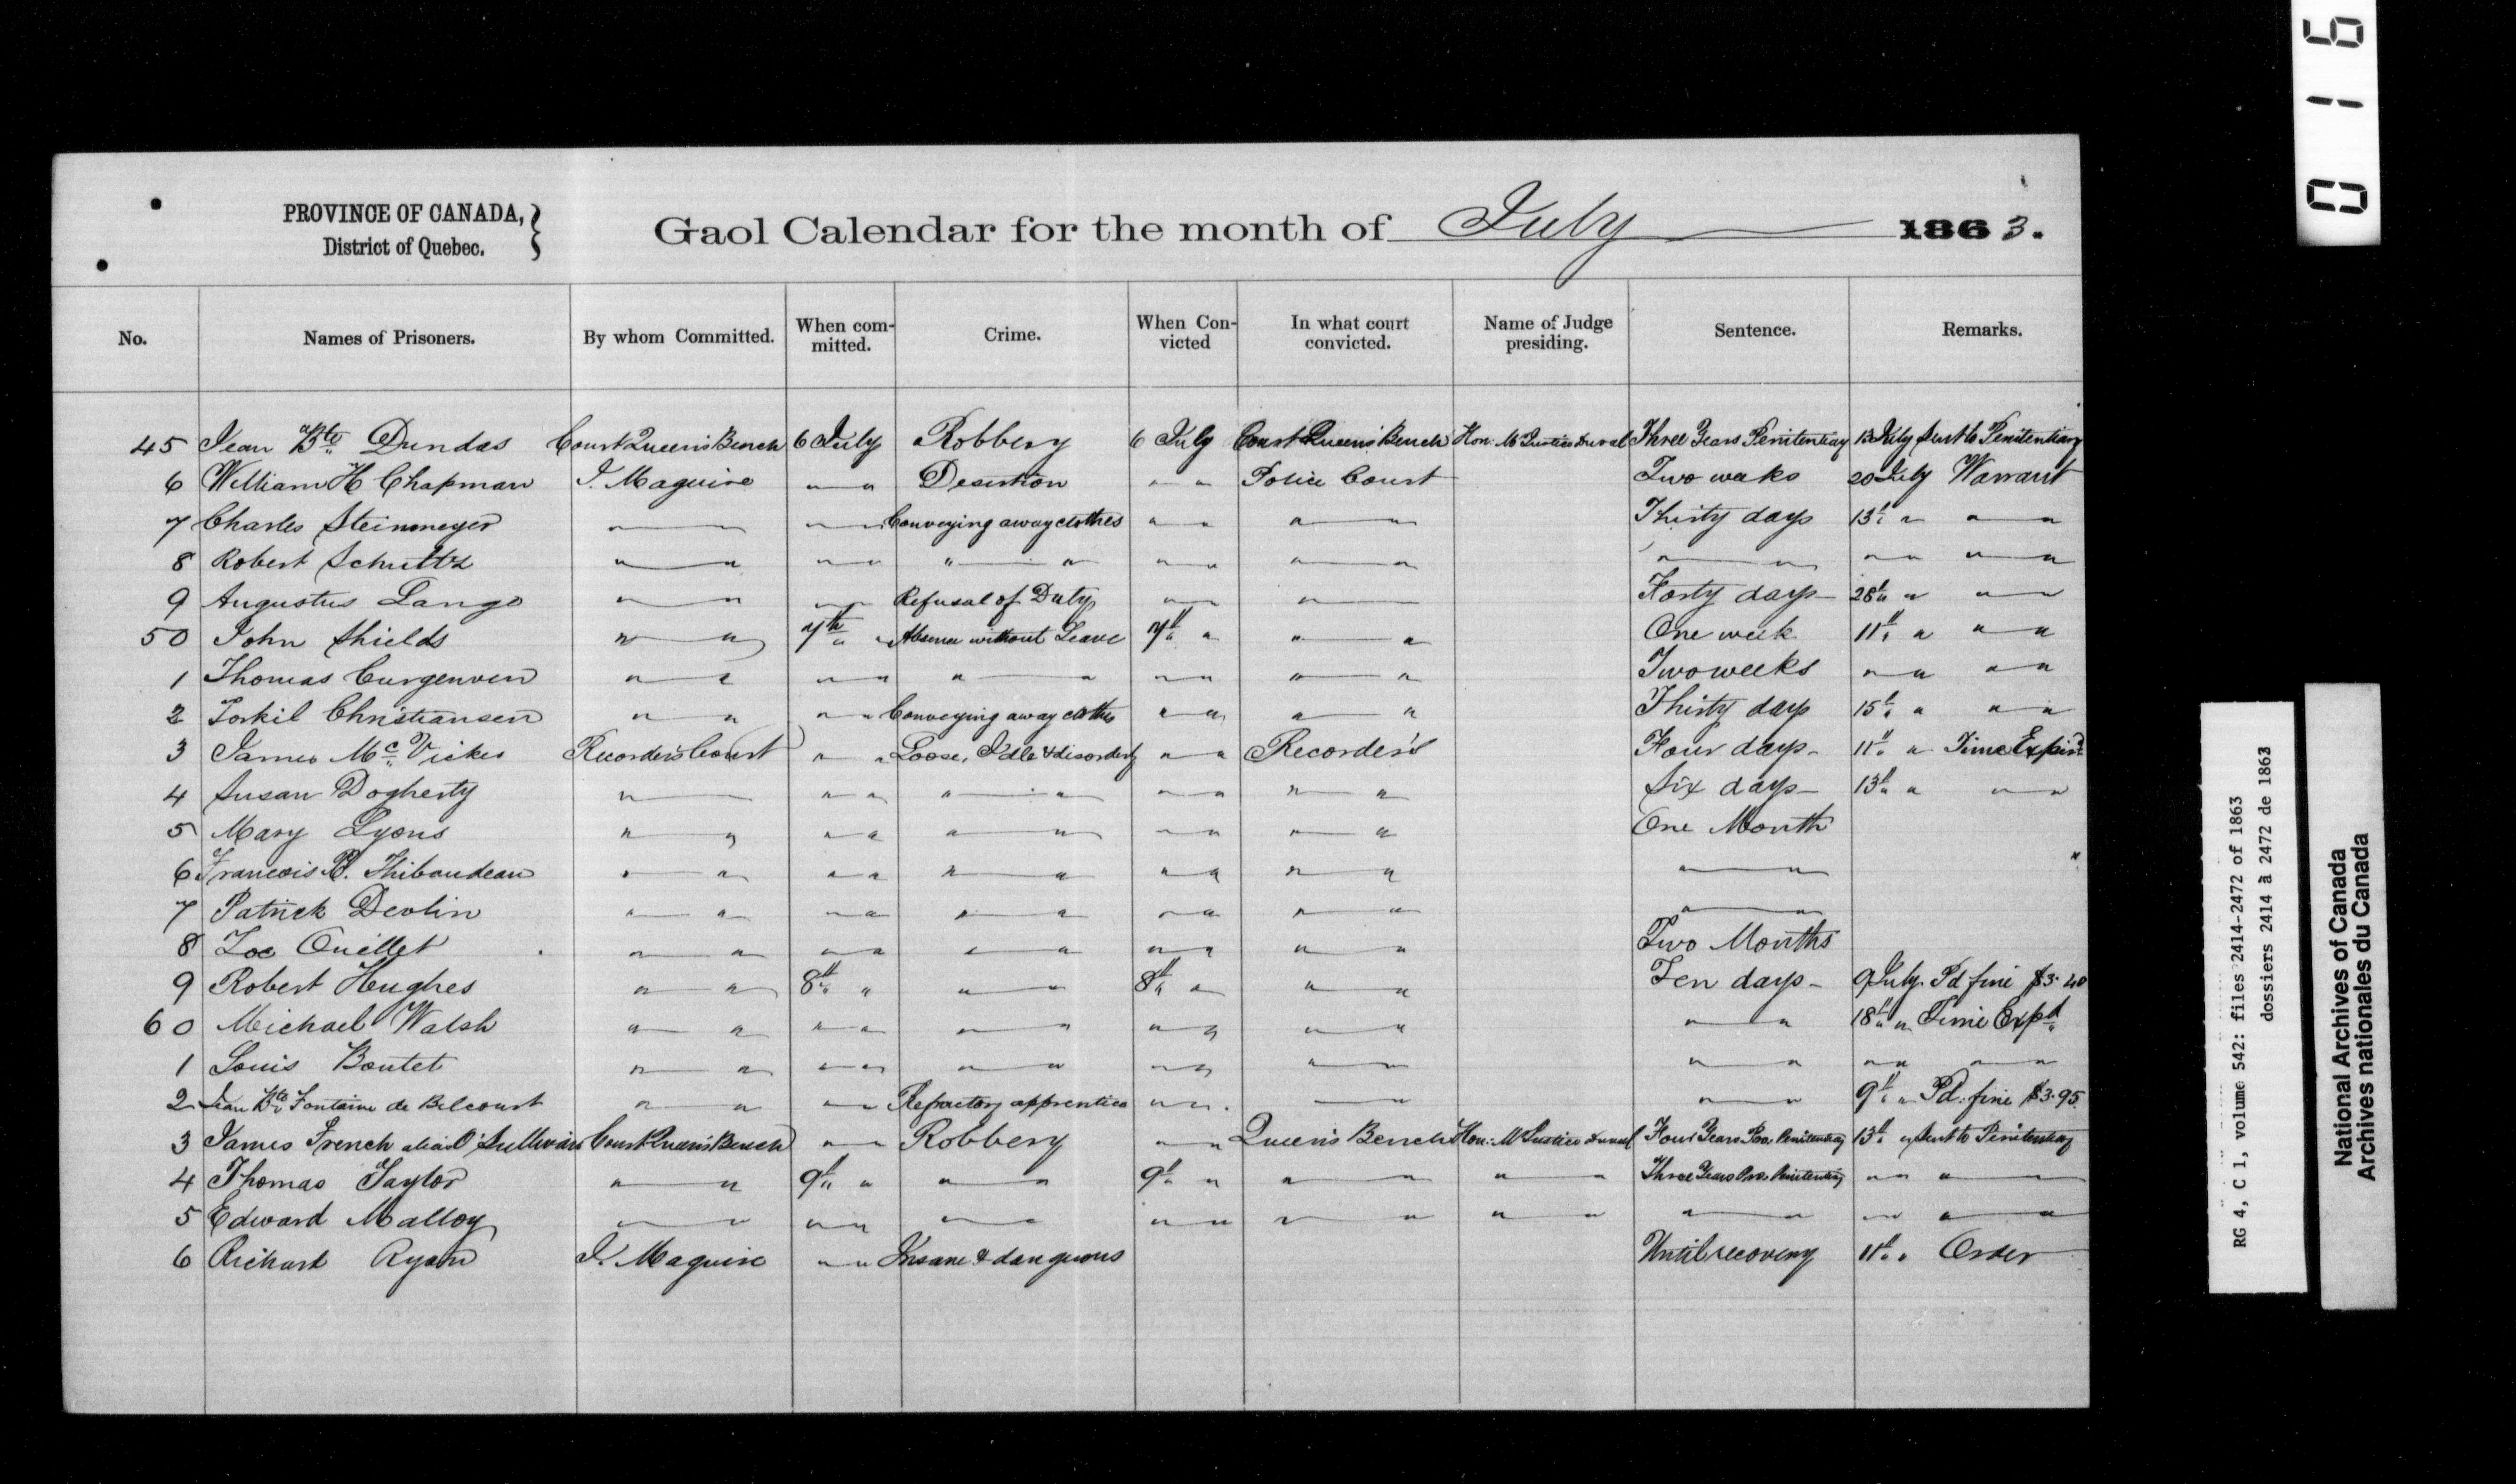 PROVINCE OF CANADA,
District of Quebec.
Gaol Calendar for the month of July 1863.
No. Names of Prisoners. By whom Committed. When committed. Crime. When Convicted In what court convicted. Name of Judge presiding. Sentence. Remarks.
45 Jean Bte Dundas Court Queen's Bench 6 July Robbery 6 July Court Queen's Bench Hon. Mr Justice Duval Three Years Penitentiary 13 July Sent to Penitentiary
6 William H Chapman J. Maguire " " Desertion " " Police Court Two weeks 20 July Warrant
7 Charles Steinmeyer " " " Conveying away clothes " " " " Thirty days 13th " " "
8 Robert Schultz " " " " " " " " " " " " " " " "
9 Augustus Lange " " " " Refusal of Duty " " " Forty days 28th " " "
50 John Shields " " 7th " Absence without Leave 7th " " " One week 11th " " "
1 Thomas Curgenven " " " " " " " " " " Two weeks " " " "
2 Torkil Christiansen " " " " Conveying away clothes " " " " Thirty days 15th " " "
3 James McVicker Recorder's Court " " Loose, Idle & disorderly " " Recorder's Four days 11th " Time Expird
4 Susan Dogherty " " " " " " " " " Six days 13th " " "
5 Mary Lyons " " " " " " " " " " One Month
6 Francois R. Thibaudeau " " " " " " " " " " " "
7 Patrick Devlin " " " " " " " " " " " "
8 Zoe Ouellet " " " " " " " " " " Two Months
9 Robert Hughes " " 8th " " " 8th " " " Ten days 9 July Pd fine $3.40
60 Michael Walsh " " " " " " " " " " " " 18th " Time Expd
1 Louis Boutet " " " " " " " " " " " " " " " "
2 Jean Bte Fontaine de Belcourt " " " " Refractory apprentice " " " " " " 9th " Pd. fine $3.95
3 James French alias O'Sullivan Court Queen's Bench " " Robbery " " Queen's Bench Hon. Mr Justice Duval Four Years Pro. Penitentiary 13th " Sent to Penitentiary
4 Thomas Taylor " " 9th " " " 9th " " " " " Three Years Pro. Penitentiary " " " "
5 Edward Malloy " " " " " " " " " " " " " " " " " "
6 Richard Ryan J. Maguire " " Insane & dangerous Until recovery 11th " Order
0 1 6
RG 4, C 1, volume 542: files 2414-2472 of 1863
dossiers 2414 à 2472 de 1863
National Archives of Canada
Archives nationales du Canada